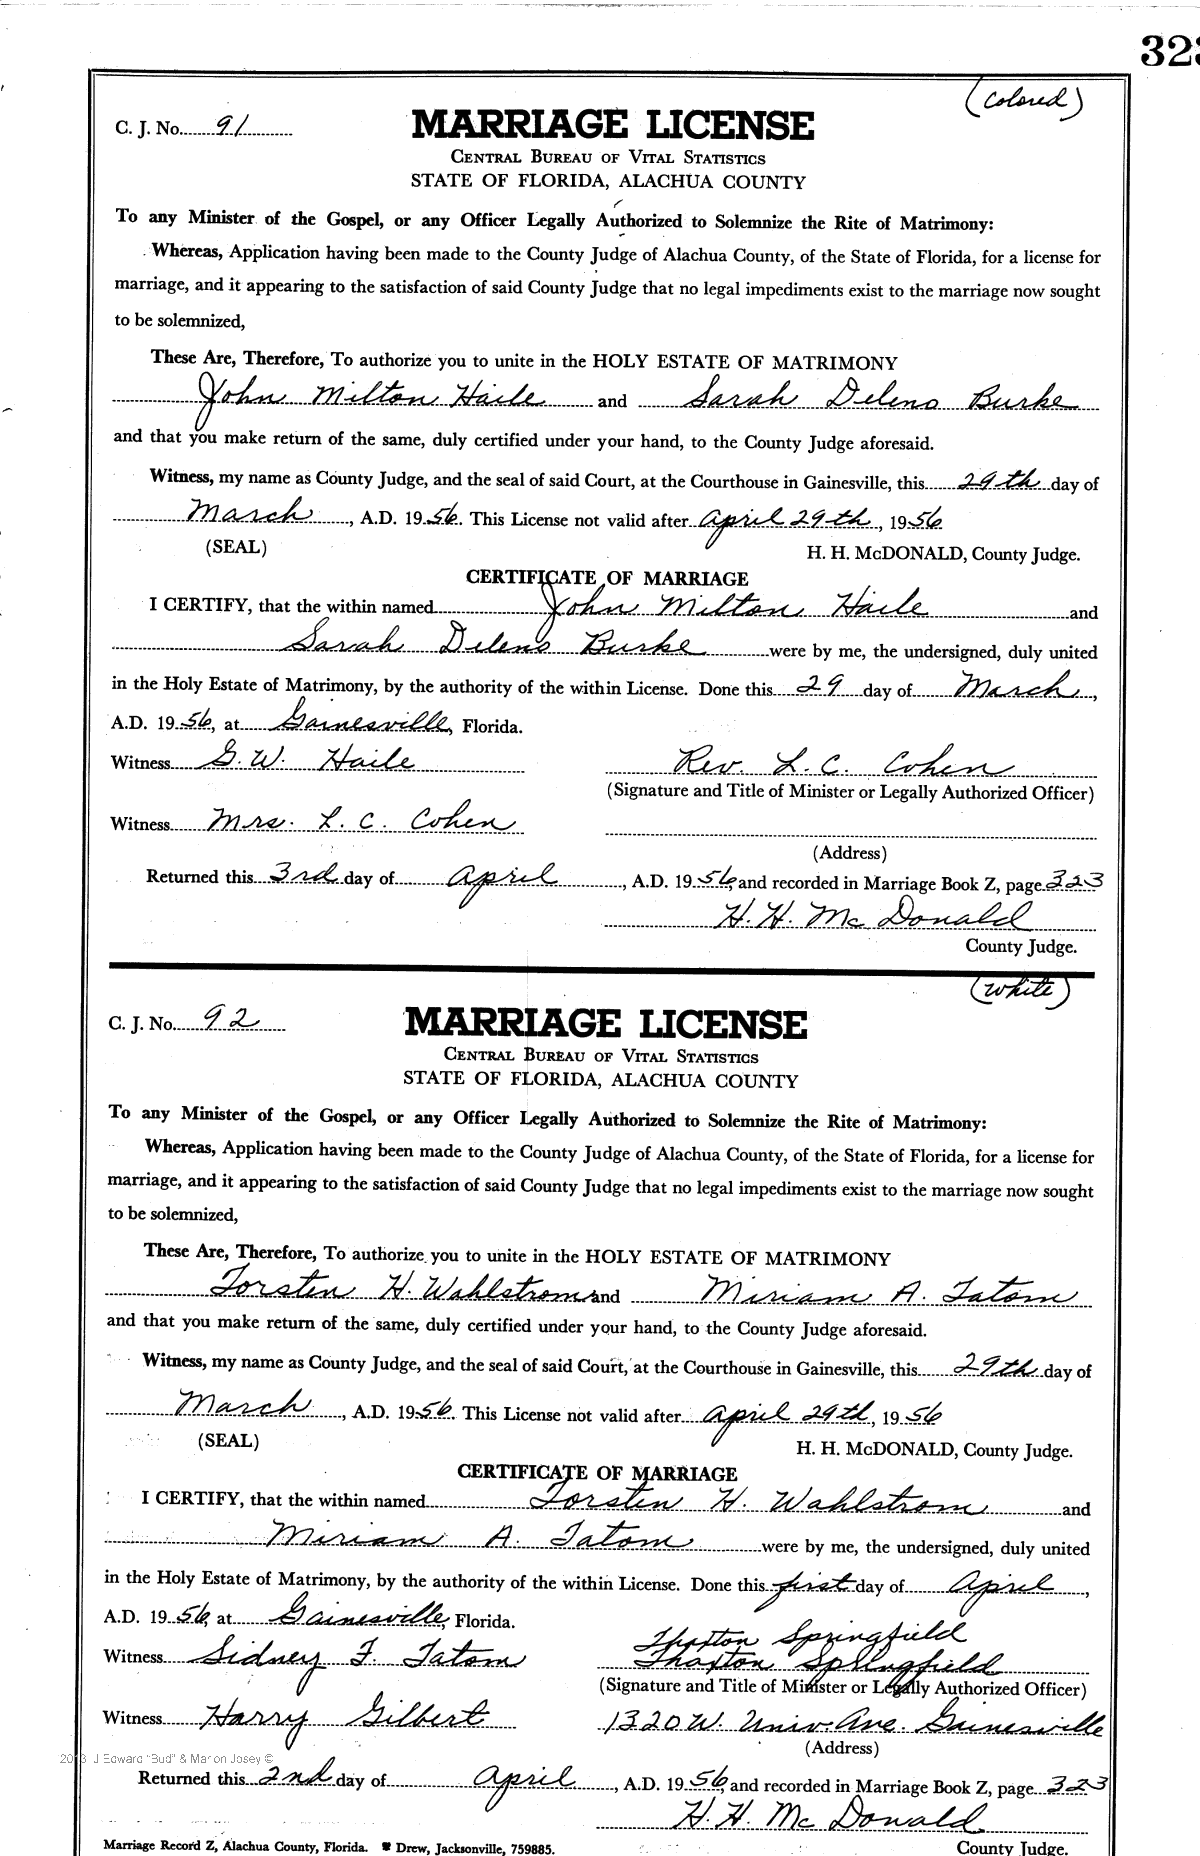 323
(colored)
C. J. No. 91
MARRIAGE LICENSE
CENTRAL BUREAU OF VITAL STATISTICS
STATE OF FLORIDA, ALACHUA COUNTY
To any Minister of the Gospel, or any Officer Legally Authorized to Solemnize the Rite of Matrimony:
Whereas, Application having been made to the County Judge of Alachua County, of the State of Florida, for a license for
marriage, and it appearing to the satisfaction of said County Judge that no legal impediments exist to the marriage now sought
to be solemnized,
These Are, Therefore, To authorize you to unite in the HOLY ESTATE OF MATRIMONY
John Milton Haile and Sarah Deleno Burke
and that you make return of the same, duly certified under your hand, to the County Judge aforesaid.
Witness, my name as County Judge, and the seal of said Court, at the Courthouse in Gainesville, this 29th day of
March, A.D. 1956. This License not valid after April 29th, 1956
(SEAL) H. H. McDONALD, County Judge.
CERTIFICATE OF MARRIAGE
I CERTIFY, that the within named John Milton Haile and
Sarah Deleno Burke were by me, the undersigned, duly united
in the Holy Estate of Matrimony, by the authority of the within License. Done this 29 day of March,
A.D. 1956, at Gainesville, Florida.
Witness G. W. Haile Rev. L. C. Cohen
(Signature and Title of Minister or Legally Authorized Officer)
Witness Mrs. L. C. Cohen
(Address)
Returned this 3rd day of April, A.D. 1956, and recorded in Marriage Book Z, page 323
H. H. McDonald
County Judge.
(white)
C. J. No. 92
MARRIAGE LICENSE
CENTRAL BUREAU OF VITAL STATISTICS
STATE OF FLORIDA, ALACHUA COUNTY
To any Minister of the Gospel, or any Officer Legally Authorized to Solemnize the Rite of Matrimony:
Whereas, Application having been made to the County Judge of Alachua County, of the State of Florida, for a license for
marriage, and it appearing to the satisfaction of said County Judge that no legal impediments exist to the marriage now sought
to be solemnized,
These Are, Therefore, To authorize you to unite in the HOLY ESTATE OF MATRIMONY
Torsten H. Wahlstrom and Miriam A. Tatom
and that you make return of the same, duly certified under your hand, to the County Judge aforesaid.
Witness, my name as County Judge, and the seal of said Court, at the Courthouse in Gainesville, this 29th day of
March, A.D. 1956. This License not valid after April 29th, 1956
(SEAL) H. H. McDONALD, County Judge.
CERTIFICATE OF MARRIAGE
I CERTIFY, that the within named Torsten H. Wahlstrom and
Miriam A. Tatom were by me, the undersigned, duly united
in the Holy Estate of Matrimony, by the authority of the within License. Done this first day of April,
A.D. 1956, at Gainesville, Florida.
Thaxton Springfield
Witness Sidney F. Tatom Thaxton Springfield
(Signature and Title of Minister or Legally Authorized Officer)
Witness Harry Gilbert 1320 W. Univ. Ave. Gainesville
(Address)
2013 J Edward "Bud" & Marion Josey ©
Returned this 2nd day of April, A.D. 1956, and recorded in Marriage Book Z, page 323
H. H. McDonald
Marriage Record Z, Alachua County, Florida. Drew, Jacksonville, 759885. County Judge.